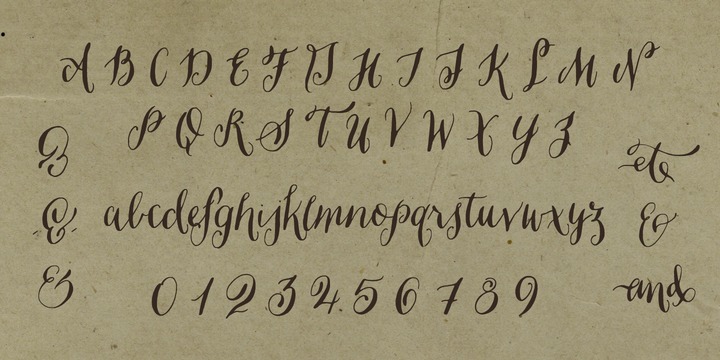 A B C D E F G H I J K L M N
P Q R S T U V W X Y Z
&
et
&
abcdefghijklmnopqrstuvwxyz
&
&
0 1 2 3 4 5 6 7 8 9
and